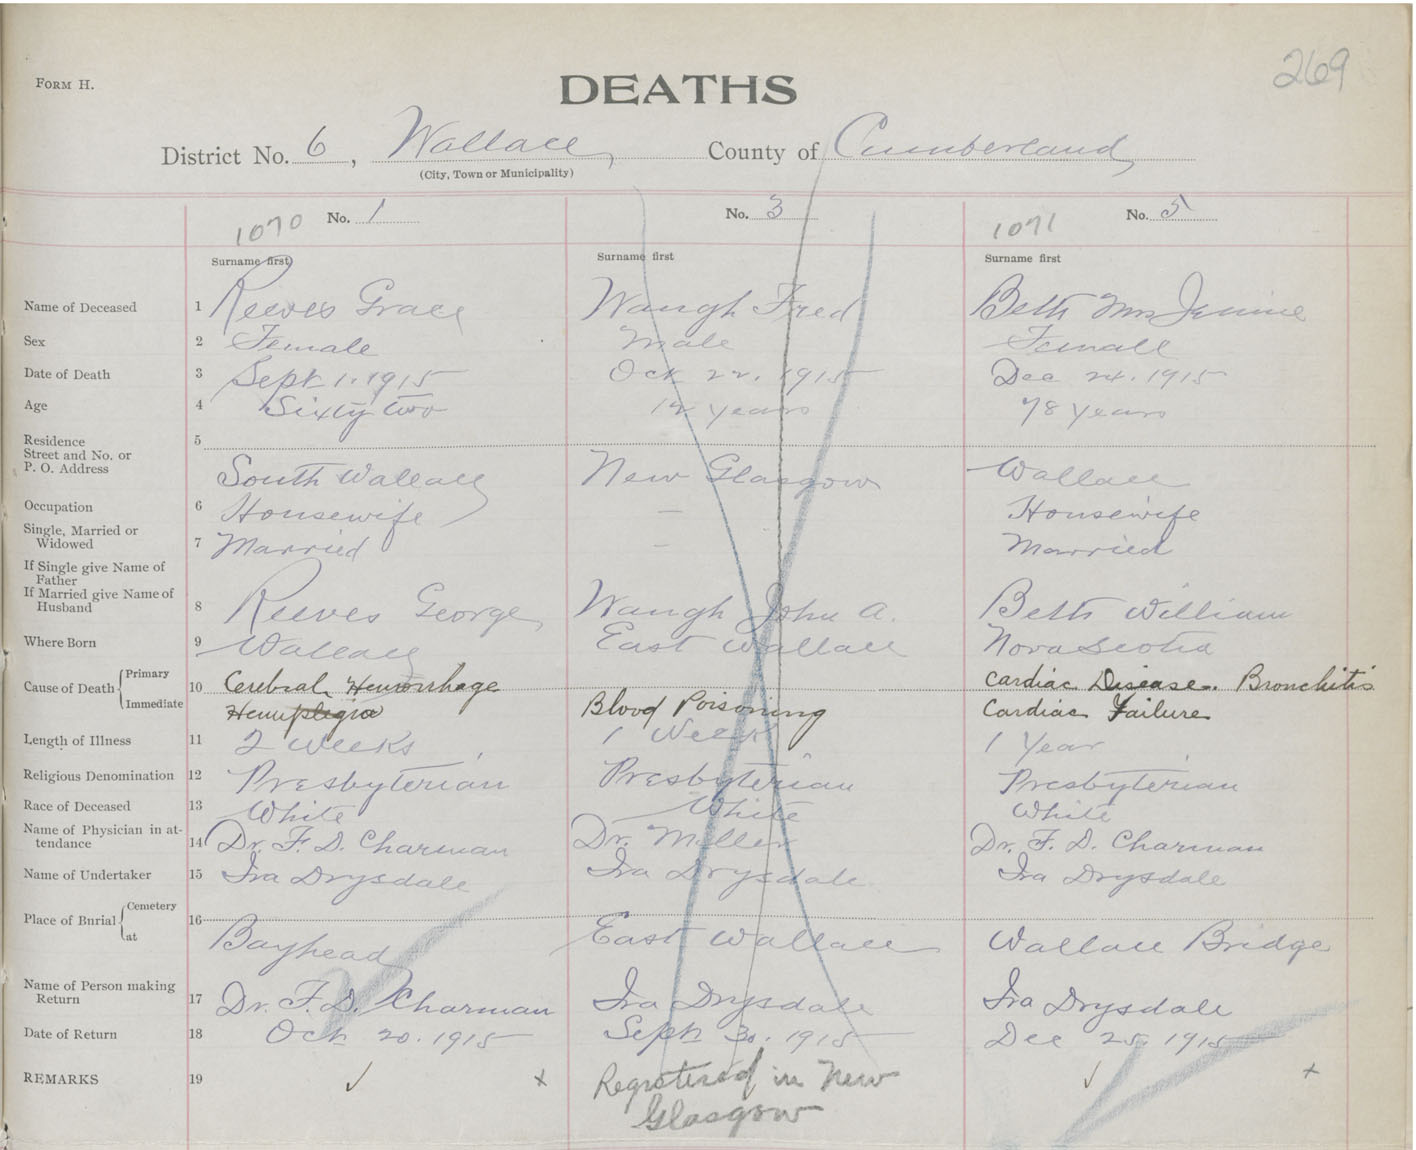 269
FORM H.
DEATHS
District No. 6, Wallace, County of Cumberland,
(City, Town or Municipality)
1070 No. 1 No. 3 1071 No. 5
Surname first Surname first Surname first
Name of Deceased 1 Reeves Grace Waugh Fred Betts Mrs Jennie
Sex 2 Female Male Female
Date of Death 3 Sept 1. 1915 Oct 22. 1915 Dec 24. 1915
Age 4 Sixty two 12 years 78 years
Residence 5
Street and No. or
P. O. Address South Wallace New Glasgow Wallace
Occupation 6 Housewife — Housewife
Single, Married or
Widowed 7 Married — Married
If Single give Name of
Father
If Married give Name of
Husband 8 Reeves George Waugh John A. Betts William
Where Born 9 Wallace East Wallace Nova Scotia
Cause of Death Primary 10 Cerebral Hemorrhage Cardiac Disease. Bronchitis
Immediate Hemiplegia Blood Poisoning Cardiac Failure
Length of Illness 11 2 Weeks 1 Week 1 Year
Religious Denomination 12 Presbyterian Presbyterian Presbyterian
Race of Deceased 13 White White White
Name of Physician in at-
tendance 14 Dr. F. D. Charman Dr. Miller Dr. F. D. Charman
Name of Undertaker 15 Ira Drysdale Ira Drysdale Ira Drysdale
Place of Burial Cemetery 16
at Bayhead East Wallace Wallace Bridge
Name of Person making
Return 17 Dr. F. D. Charman Ira Drysdale Ira Drysdale
Date of Return 18 Oct 20. 1915 Sept 30. 1915 Dec 25. 1915
REMARKS 19 ✓ x Registered in New ✓ x
Glasgow